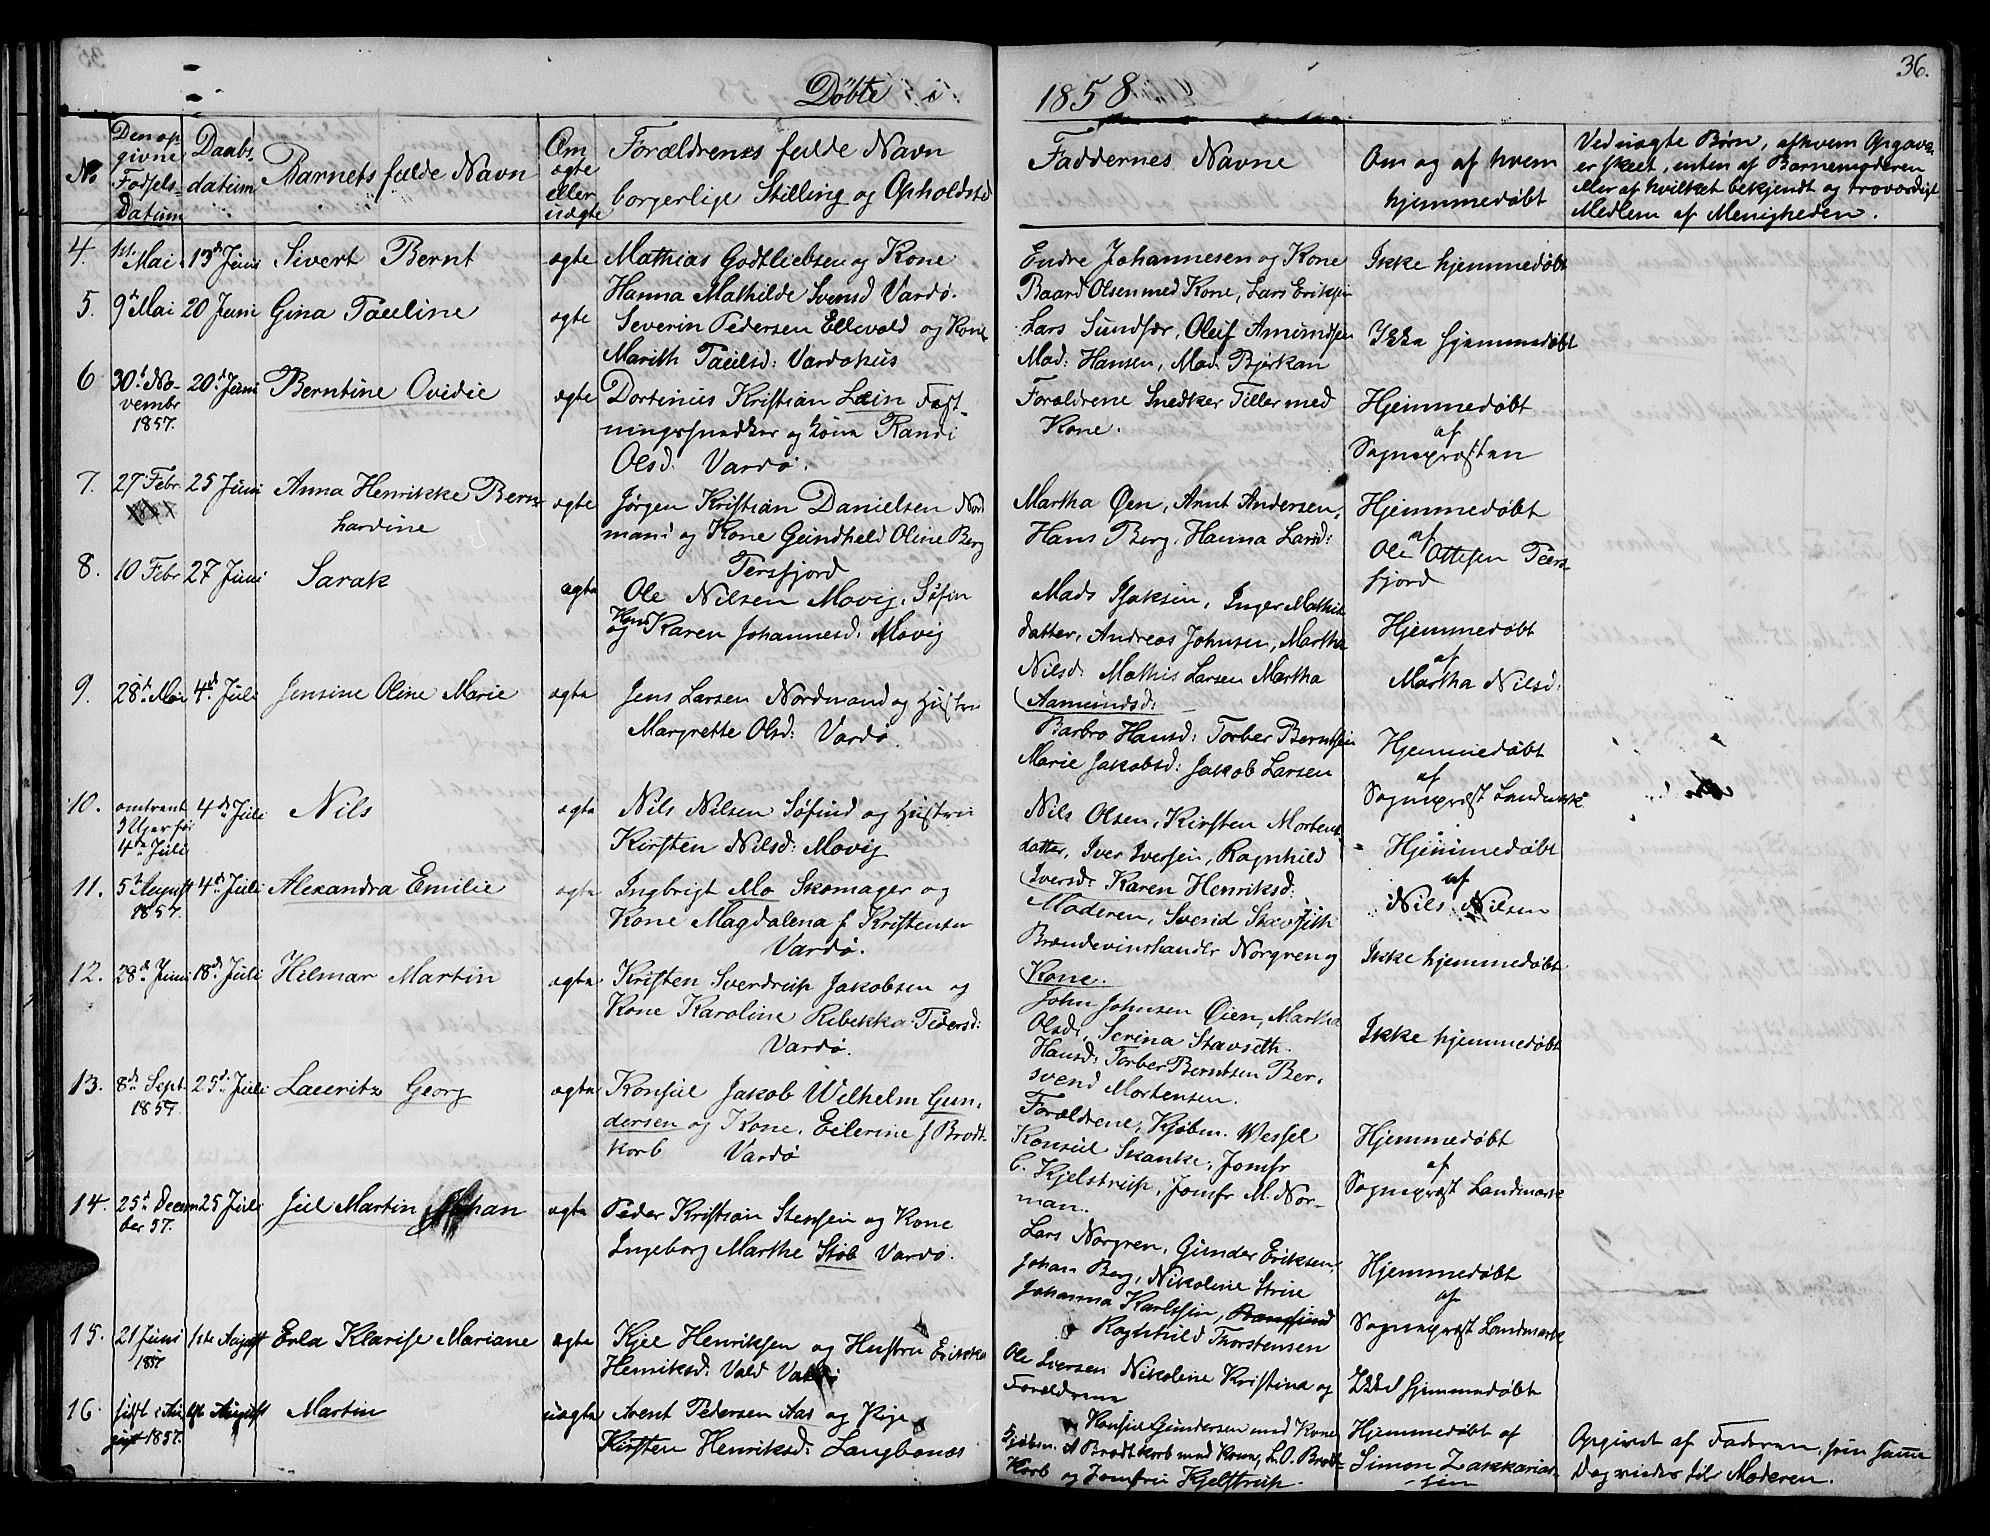 36.
Døbte i 1858
No
Den op-
givne
Fødsels-
Datum
Daabs-
datum
Barnets fulde Navn
Om
ægte
eller
uægte
Forældrenes fulde Navn
borgerlige Stilling og Opholdsted
Faddernes Navne
Om og af hvem
hjemmedøbt
Ved uægte Børn, af hvem Opgave
er skeet, enten af Barnemoderen
eller af hvilket bekjendt og troværdigt
Medlem af Menigheden.
4. 1ste Mai 13de Juni Sivert Bernt ægte
Mathias Godtliebsen og Kone
Hanna Mathilde Svensd Vardø.
Endre Johannesen og Kone
Baard Olsen med Kone, Lars Eriksen
Ikke hjemmedøbt
5. 9de Mai 20 Juni Gina Pauline ægte
Severin Pedersen Ellevold og Kone
Marith Paulsd: Vardøhus
Lars Sundfær, Oluf Amundsen
Mad: Hansen, Mad: Bjørkan
Ikke hjemmedøbt
6 30te No-
vembr
1857.
20de Juni Berntine Ovidie ægte
Dortinius Kristian Lein Fæst-
ningssnedker og Kone Randi
Olsd: Vardø.
Forældrene Snedker Tiller med
Kone.
Hjemmedøbt
af
Sognepræsten
7. 27 Febr. 25 Juni Anna Henrikke Bern-
hardine
ægte
Jørgen Kristian Danielsen Nord
mand og Kone Gundheld Oline Berg
Persfjord
Martha Øen, Arnt Andersen,
Hans Berg, Hanna Larsd:
Hjemmedøbt
af
Ole Ottesen Pers-
fjord
8. 10 Febr 27 Juni Sarak ægte
Ole Nilsen Movig, Søfin
og Kone Karen Johannesd: Movig
Mads Isaksen, Inger Mathis
datter, Andreas Johnsen, Martha
Nilsd: Mathis Larsen Martha
Aamundsd:
Hjemmedøbt
af
Martha Nilsd:
9. 28de Mai 4de Juli Jensine Oline Marie ægte
Jens Larsen Nordmand og Hustru
Margrette Olsd: Vardø.
Barbro Hansd: Torber Berntsen
Marie Jakobsd: Jakob Larsen
Hjemmedøbt
af
Sognepræst Landmark
10. omtrent
3 Uger før
4de Juli
4de Juli Nils ægte
Nils Nilsen Søfind og Hustru
Kirsten Nilsd: Movig
Nils Olsen, Kirsten Mortens
datter, Iver Iversen, Ragnhild
Iversd: Karen Henriksd:
Hjemmedøbt
af
Nils Nilsen
11. 5te August
1857.
4de Juli Alexandra Emilie ægte
Ingbrigt Mo Skomager og
Kone Magdalena f Kristensen
Vardø.
Moderen, Svend Stavseth
Brændevinshandler Norgren og
Kone.
Ikke hjemmedøbt
12. 28de Juni 18de Juli Hilmar Martin ægte
Kristen Sverdrup Jakobsen og
Kone Karoline Rebekka Pedersd:
Vardø.
John Johnsen Øien, Martha
Olsd:, Serina Stavseth
Hansd: Torber Berntsen Ber-
svend Mortensen.
Ikke hjemmedøbt
13. 8de Sept.
1857
25de Juli Lauritz Georg ægte
Konsul Jakob Wilhelm Gun-
dersen og Kone, Eilerine f Brodt-
korb Vardø
Forældrene, Kjøbm. Wessel
Konsul Skanke, Jomfr
C. Kjelstrup, Jomfr M. Nor-
man.
Hjemmedøbt
af
Sognepræst Landmark
14. 25de Decem
ber 57.
25 Juli Juel Martin Johan ægte
Peder Kristian Stensen og Kone
Ingeborg Marthe Støb Vardø.
Lars Norgren, Gunder Eriksen,
Johan Berg, Nikoline Strøe
Johanna Karlsen,
Ragnhild Thorstensen
Hjemmedøbt
af
Sognepræst Landmark
15. 21 Juni
1857
1ste August Erla Klarise Mariane ægte
Kjel Henriksen og Hustru Erikka
Henriksd: Vald
Ole Iversen Nikoline Kristina og
Forældrene
Ikke hjemmedøbt
16. sidst i Au
gust 1857.
1ste August Martin uægte
Arent Pedersen Aas og Pige
Kirsten Henriksd: Langbunæs
Konsul Gundersen med Kone
Kjøbm. A Brodtkorb med Kone, L.O. Brodt-
korb og Jomfru Kjelstrup.
Hjemmedøbt af
Simon Zakkarias-
sen
Opgivet af Faderen, som samme
Dag viedes til Moderen.